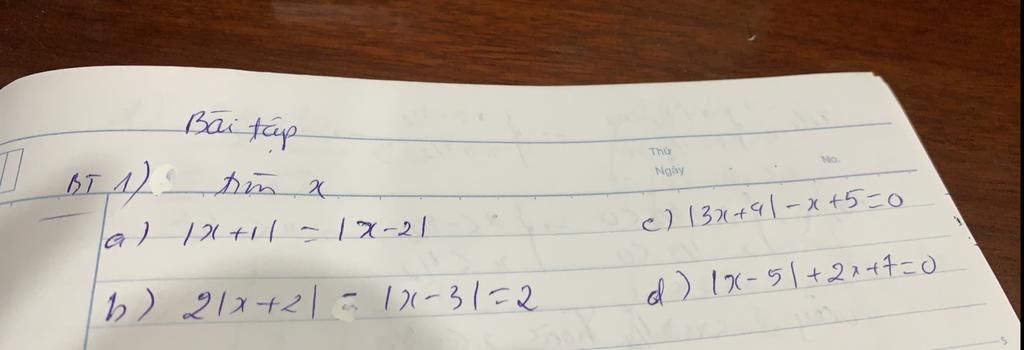 Bài tập
Thứ
Ngày
No.
BT 1) tìm x
a) |x+1| = |x-2|
c) |3x+9| - x+5=0
b) 2|x+2| = |x-3|=2
d) |x-5| + 2x+7=0
5